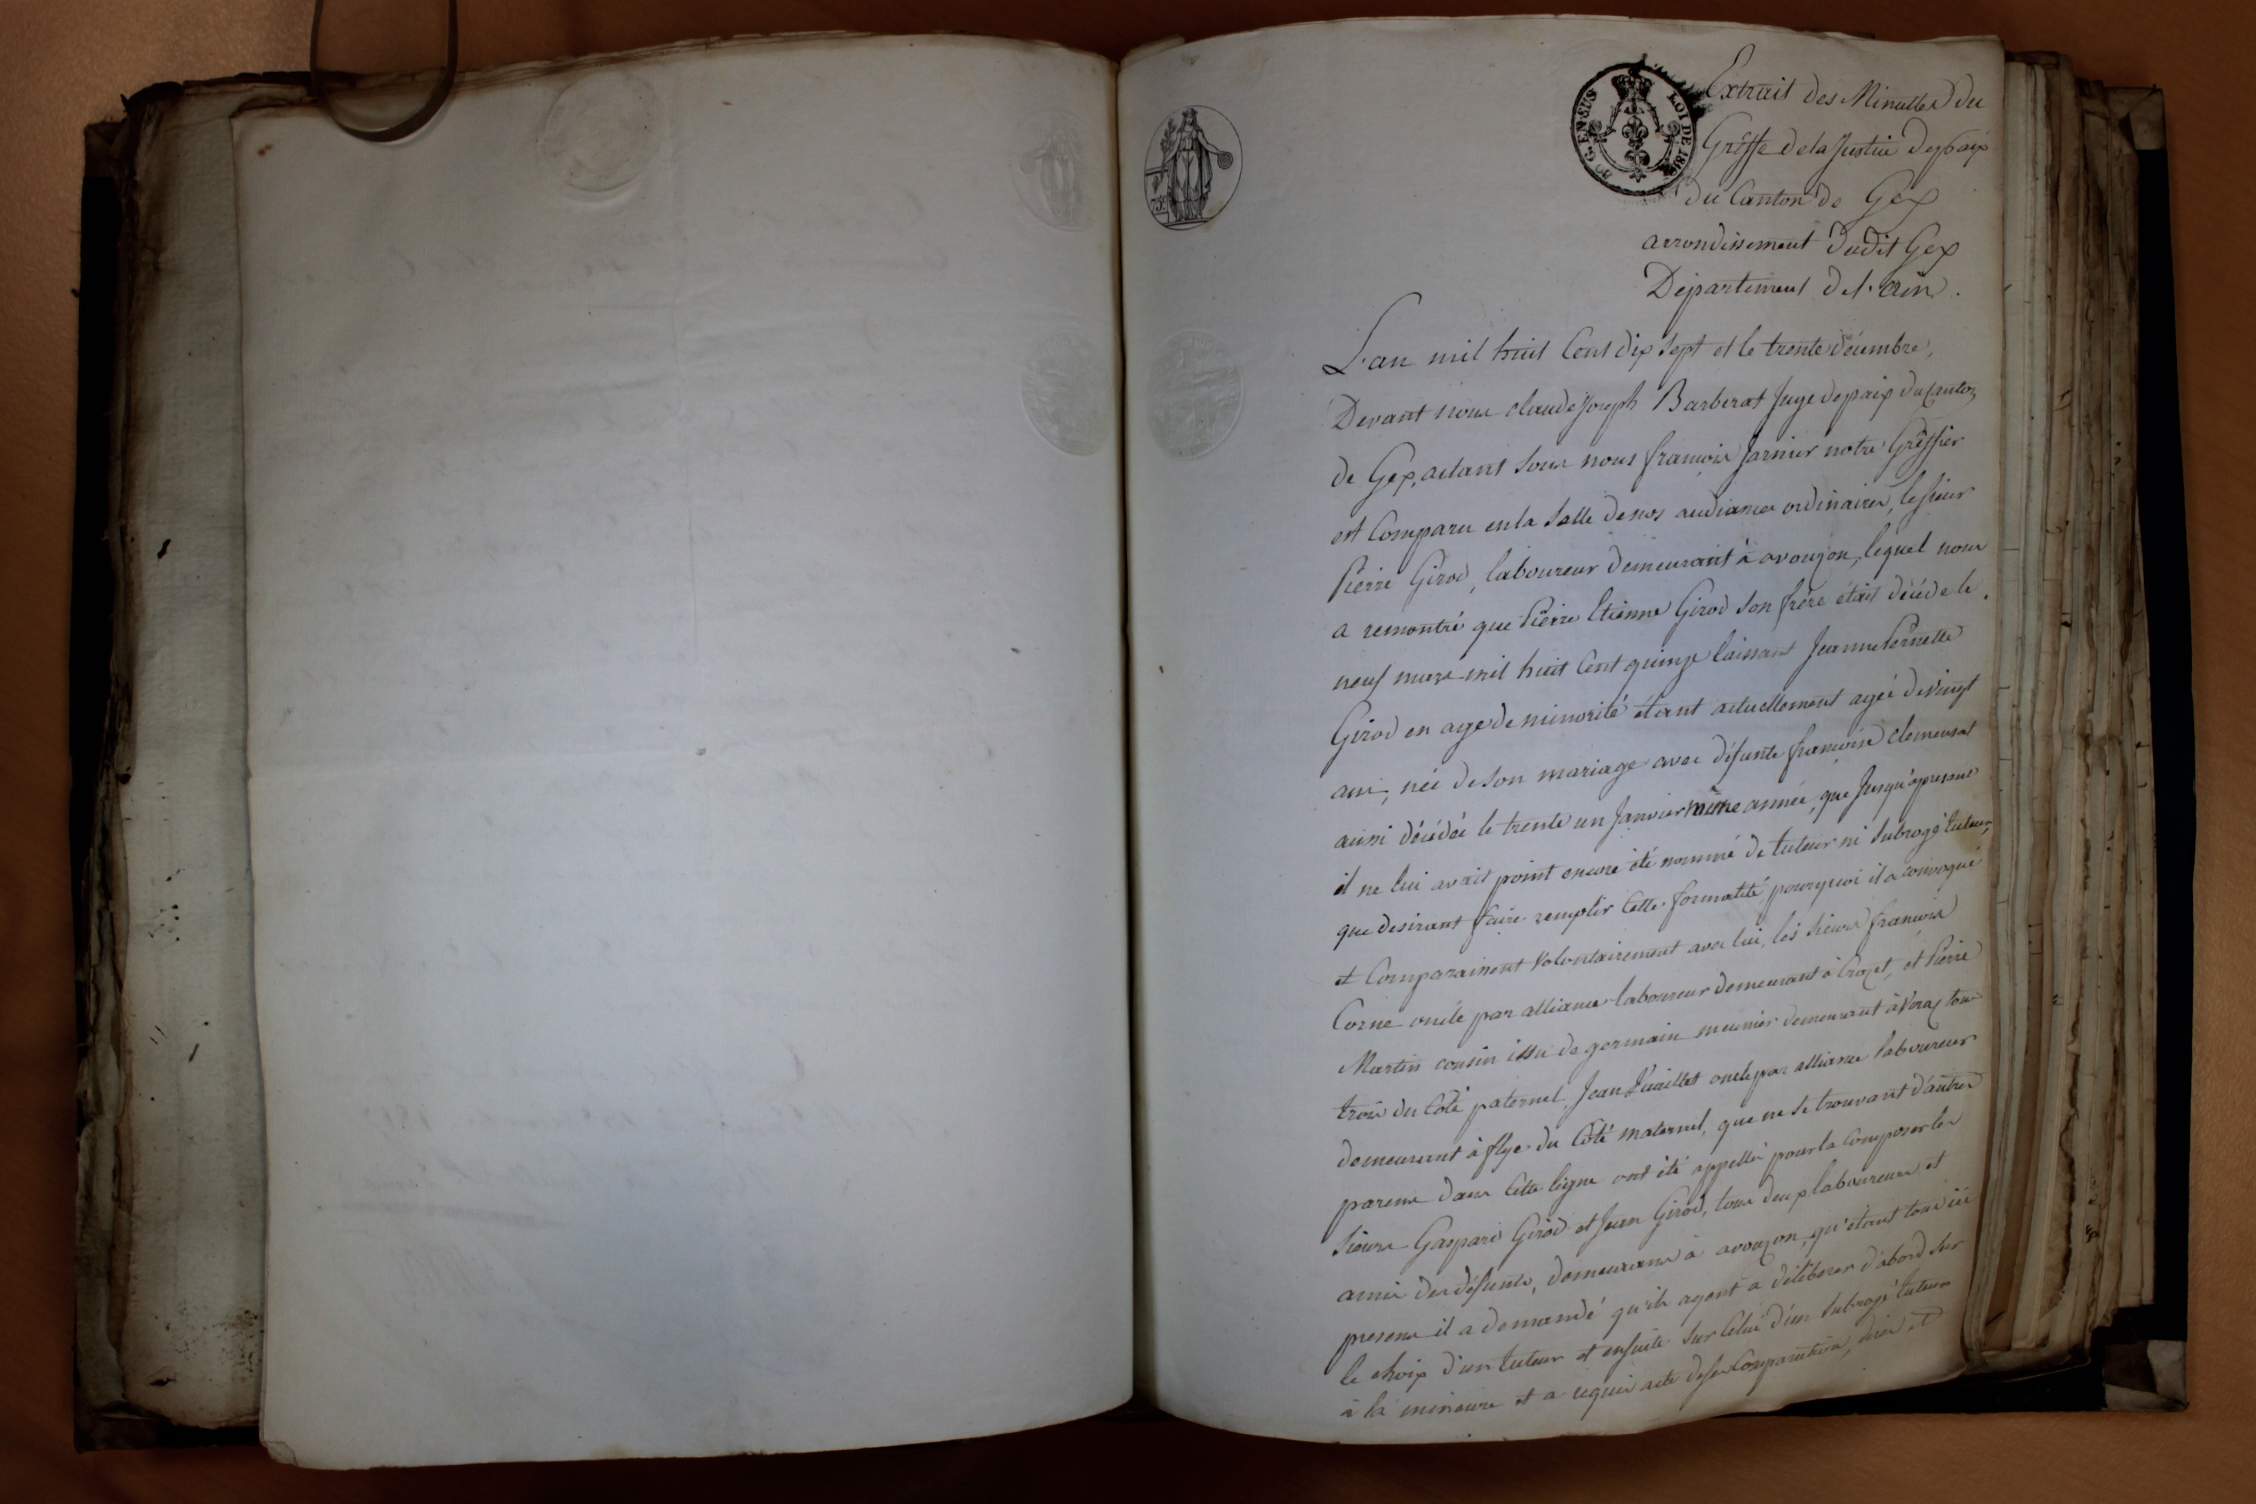 Extrait des Minuttes du
Greffe de la Justice de paix
du Canton de Gex
arrondissement dudit Gex
Departement de l'ain.
LOI DE
EN SUS
L'an mil huit Cent dix sept et le trente décembre,
Devant nous claude Joseph Barberat Juge de paix du Canton
de Gex, actant sous nous françois Jarnier notre Greffier
est Comparu en la Salle de nos audiances ordinaires, le sieur
Pierre Girod, laboureur demeurant à avouzon, lequel nous
a remontré que Pierre Etienne Girod son frère étais décédé le
neuf mars mil huit Cent quinze laissant Jeanne Pernette
Girod en age de minorité étant actuellement agée de vingt
ans, née de son mariage avec défunte françoise clemensat
aussi décédée le trente un Janvier même année, que Jusqu'apresent
il ne lui avait point encore été nommé de tuteur ni subrogé tuteur,
que desirant faire remplir Cette formalité pourquoi il a convoqué
et Comparaissent volontairement avec lui, les sieurs françois
Corne oncle par alliance laboureur demeurant à Crozet, et Pierre
Martin cousin issu de germain meunier demeurant à Veraz tous
trois du Coté paternel, Jean oncle par alliance laboureur
demeurant à flye du Côté maternel, que ne se trouvant d'autres
parens dans Cette ligne ont été appellés pour la Composer les
Sieurs Gaspard Girod et Jean Girod, tous deux laboureurs et
amis des défunts, demeurans à avouzon, qu'étant tous ici
presens il a demandé qu'ils ayent à délibérer d'abord sur
le choix d'un tuteur et ensuite sur Celui d'un subrogé tuteur
à la mineure et a requis acte de sa Comparution, dire et